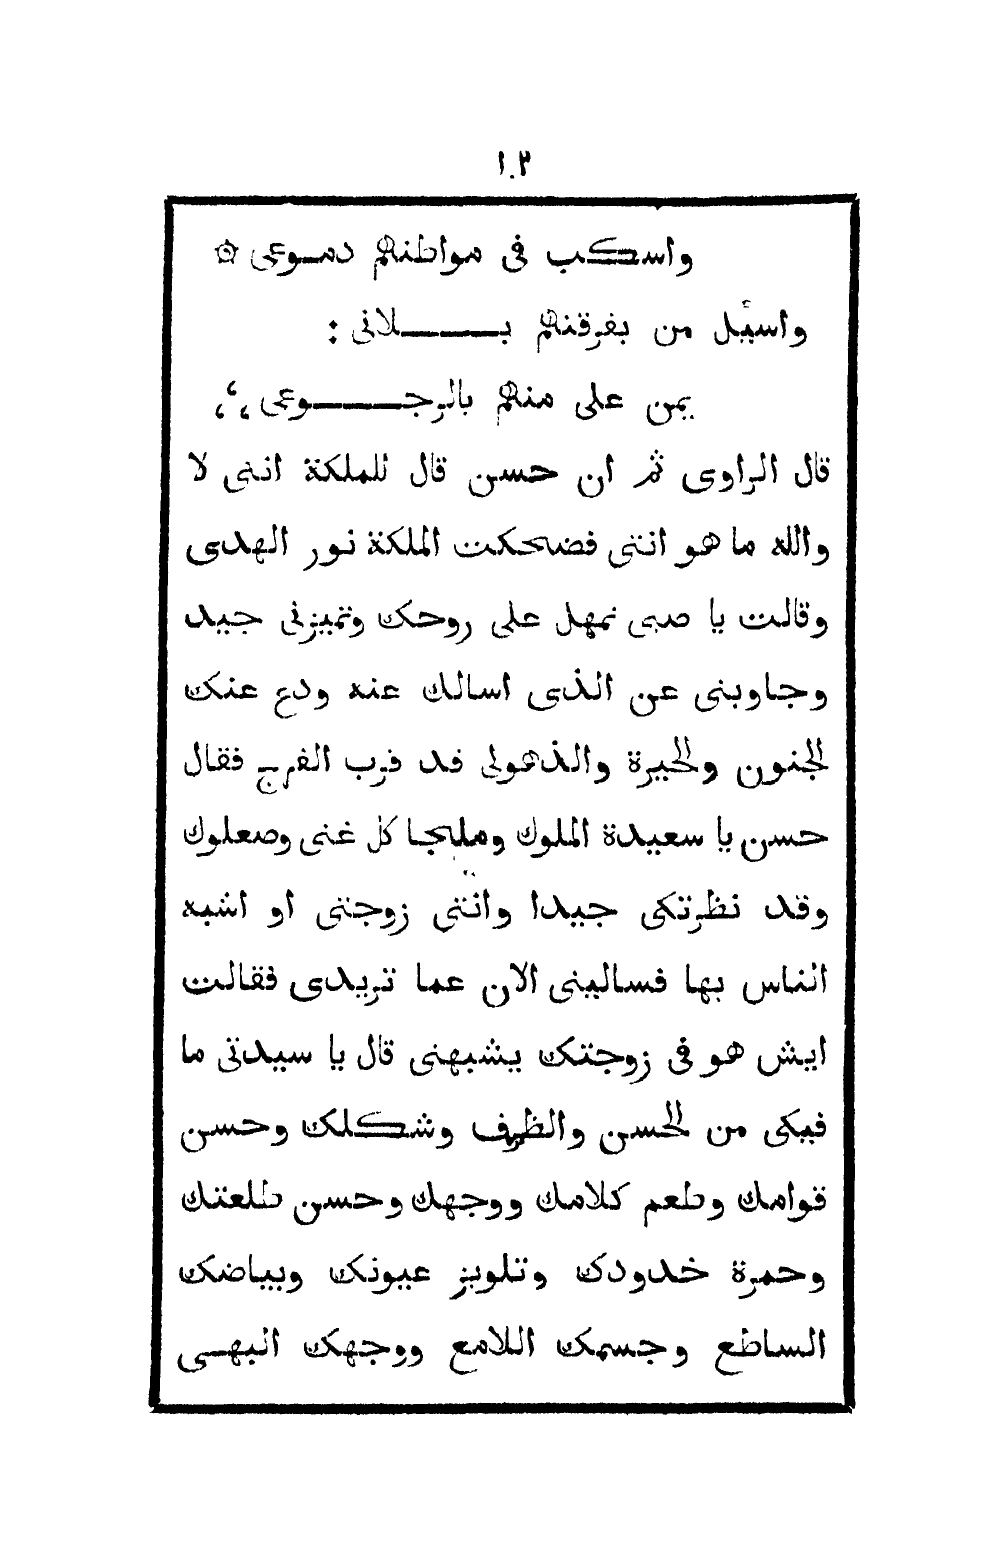 ١٠٢
واسكب فى مواطنهم دموعى ۞
واسيل من بفرقتهم بـــلانى :
يمن على منهم بالرجـــوعى
قال الراوى ثم ان حسن قال للملكة اننى لا
والله ما هو انتى فضحكت الملكة نور الهدى
وقالت يا صبى تمهل على روحك وتميزنى جيد
وجاوبنى عن الذى اسالك عنه ودع عنك
الجنون والحيرة والذهولى فد قرب الفرج فقال
حسن يا سعيدة الملوك وملجا كل غنى وصعلوك
وقد نظرتكى جيدا وانتى زوجتى او اشبه
الناس بها فساليبنى الان عما تريدى فقالت
ايش هو فى زوجتك يشبهنى قال يا سيدتى ما
فيكى من الحسن والظرف وشكلك وحسن
قوامك وطعم كلامك ووجهك وحسن طلعتك
وحمرة خدودك وتلويز عيونك وبياضك
الساطع وجسمك اللامع ووجهك البهى